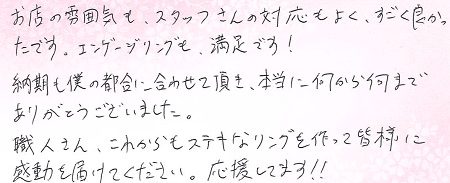 お店の雰囲気も、スタッフさんの対応もよく、すごく良かっ
たです。エンゲージリングも、満足です!
納期も僕の都合に合わせて頂き、本当に何から何まで
ありがとうございました。
職人さん、これからもステキなリングを作って皆様に
感動を届けてください。応援してます!!